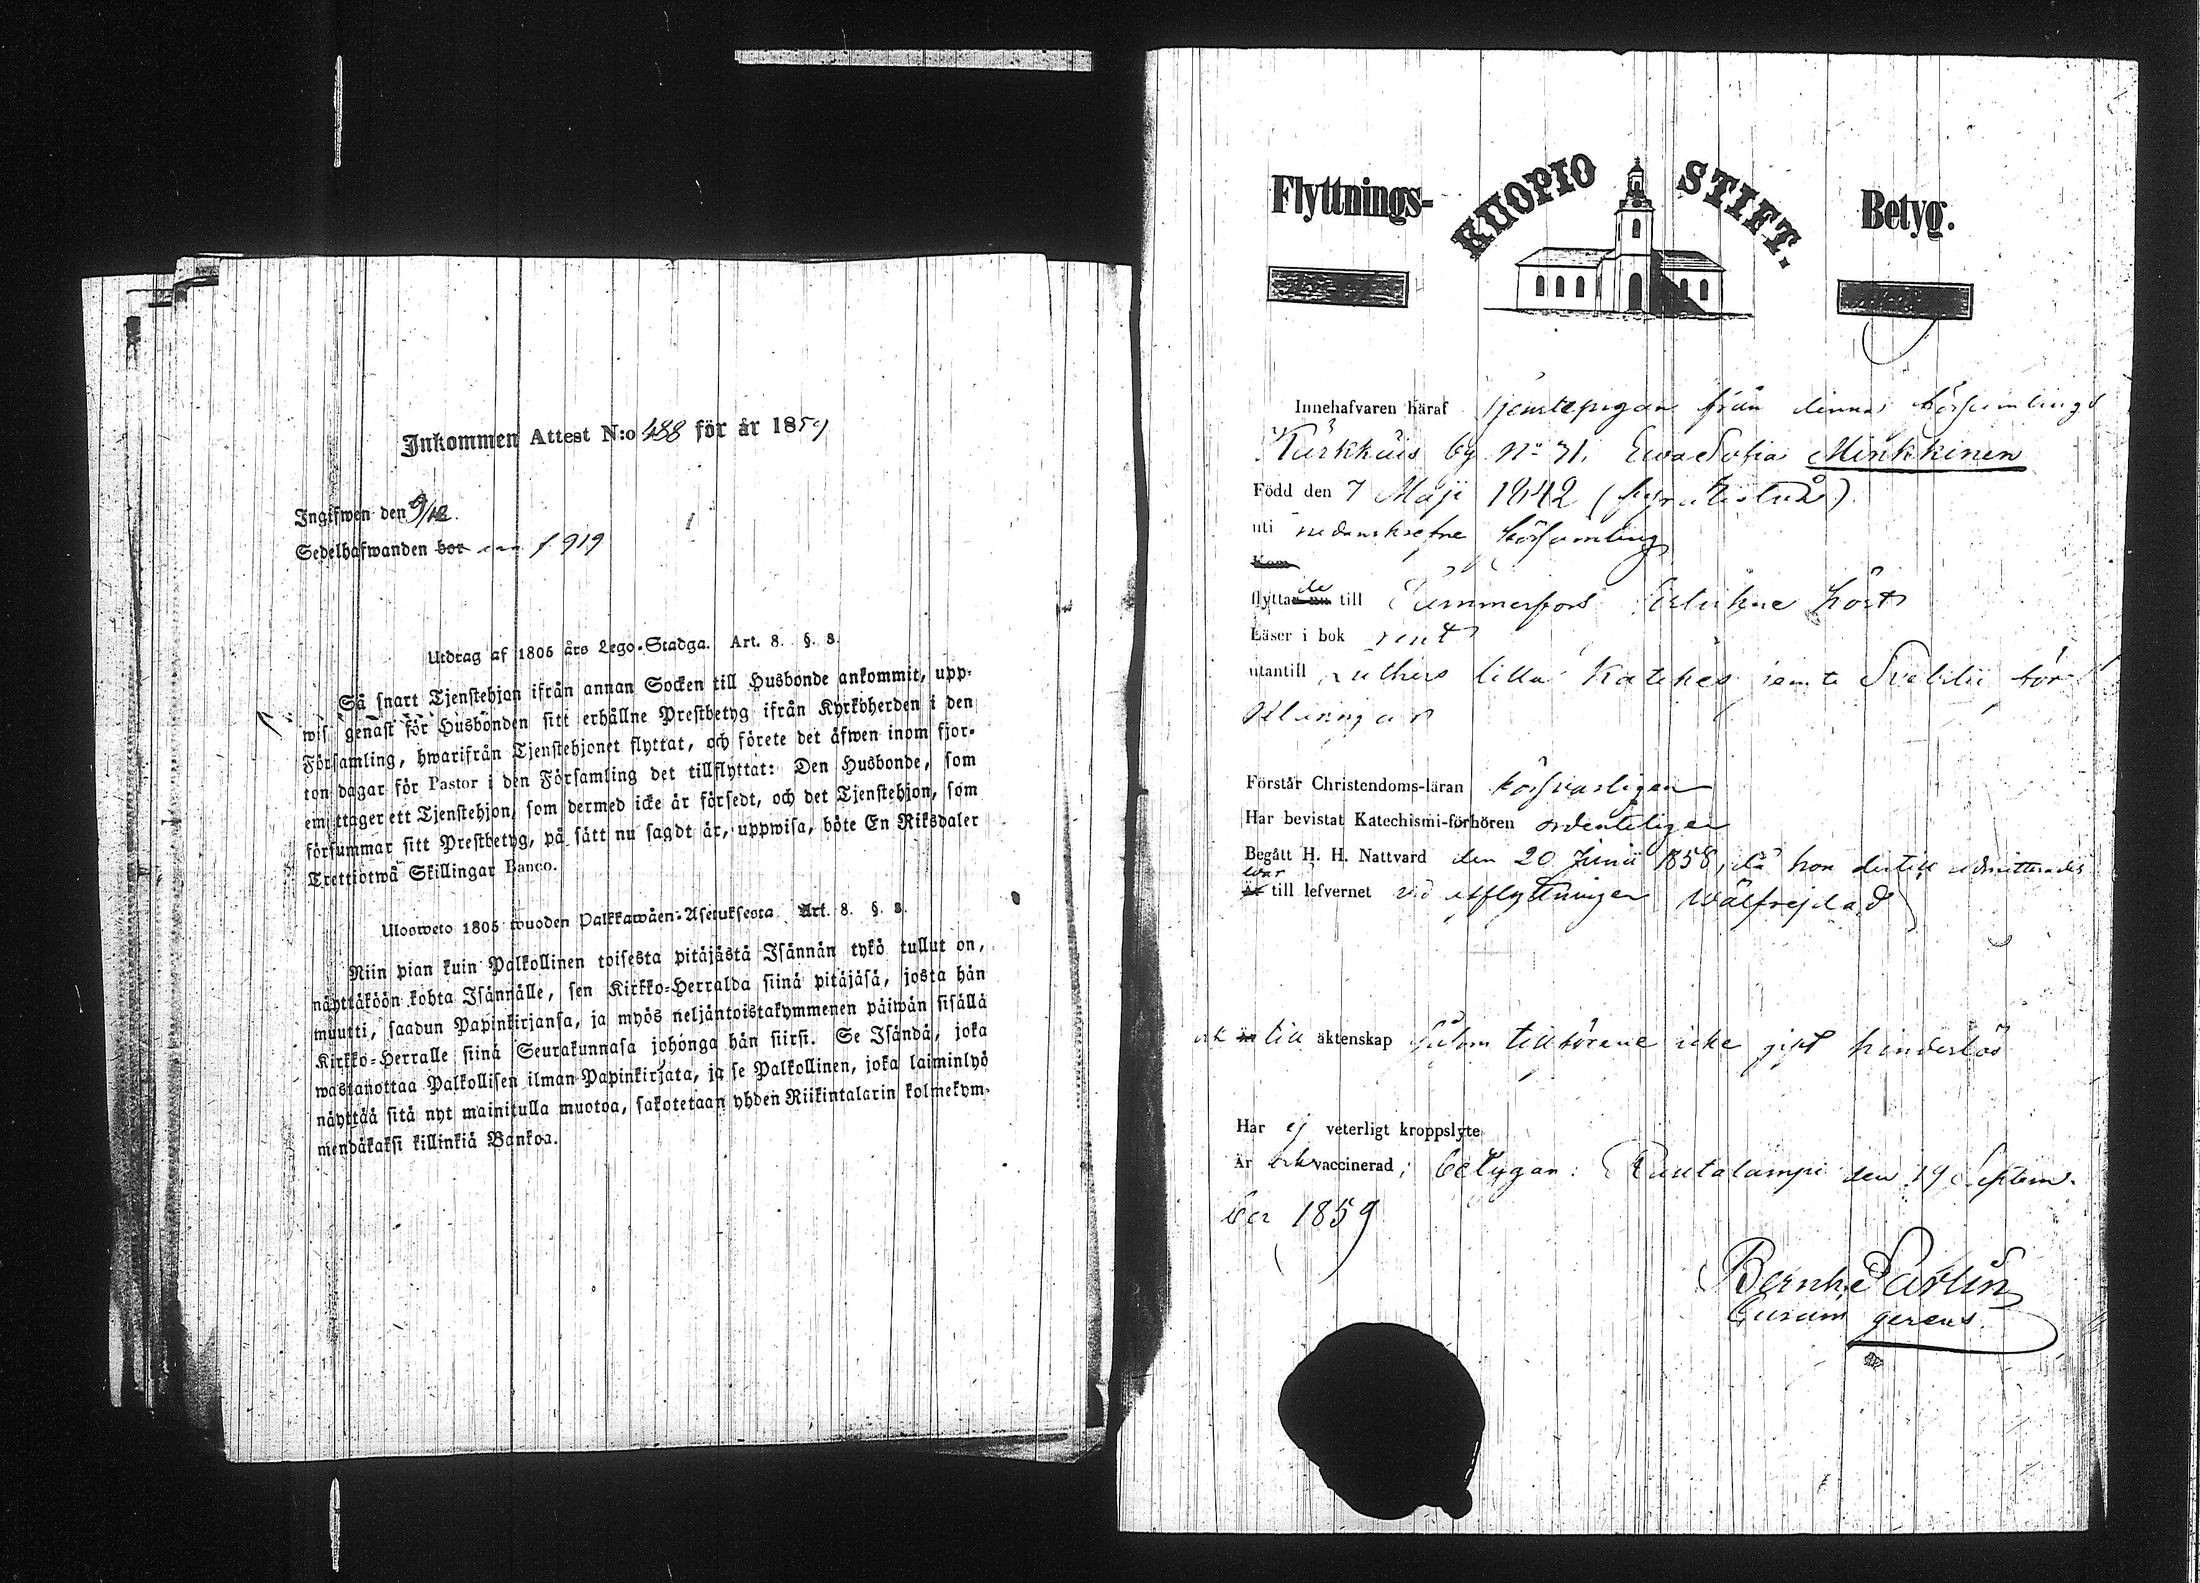 Inkommen Attest N:o 488 för år 1859
Ingifwen den 9/12.
Sedelhafwanden bor f 919
Utdrag af 1805 års Lego-Stadga. Art. 8. §. 8.
Så snart Tjenstehjon ifrån annan Socken till Husbonde ankommit, upp-
wis genast för Husbonden sitt erhållne Prestbetyg ifrån Kyrkoherden i den
Församling, hwarifrån Tjenstehjonet flyttat, och förete det äfwen inom fjor-
ton dagar för Pastor i den Församling det tillflyttat: Den Husbonde, som
emottager ett Tjenstehjon, som dermed icke är försedt, och det Tjenstehjon, som
försummar sitt Prestbetyg, på sätt nu sagdt är, uppwisa, böte En Riksdaler
Trettiotwå Skillingar Banco.
Ulosweto 1805 wuoden Palkkawäen-Asetuksesta Art. 8. §. 8.
Niin pian kuin Palkollinen toisesta pitäjästä Isännän tykö tullut on,
näyttäköön kohta Isännälle, sen Kirkko-Herralda siinä pitäjäsä, josta hän
muutti, saadun Papinkirjansa, ja myös neljäntoistakymmenen päiwän sisällä
Kirkko-Herralle siinä Seurakunnasa johonga hän siirsi. Se Isändä, joka
wastanottaa Palkollisen ilman Papinkirjata, ja se Palkollinen, joka laiminlyö
näyttää sitä nyt mainitulla muotoa, sakotetaan yhden Riikintalarin kolmekym-
mendäkaksi killinkiä Bankoa.
Flyttnings- KUOPIO STIFT. Betyg.
Innehafvaren häraf tjenstepigan från denna församlings
Kärkkäis by No 71, Ewa Sofia Minkkinen
Född den 7 Maji 1842 (fyratiotvå)
uti nedanskrefne församling
Kom
flyttar nu de till Tammerfors
Läser i bok rent
utantill Luthers lilla Katekes jemte Svebilii för-
klaringar
Förstår Christendoms-läran försvarligen
Har bevistat Katechismi-förhören ordentligen
Begått H. H. Nattvard den 20 Junii 1858, då hon dertill admitterades
är war till lefvernet vid afflyttningen wälfrejdad
och är till äktenskap såsom tillhörene icke gift hinderlös
Har ej veterligt kroppslyte
Är och vaccinerad; betygar: Rautalampi den 19 Septem-
ber 1859
Bernh. Sarlin
Curam gerens.